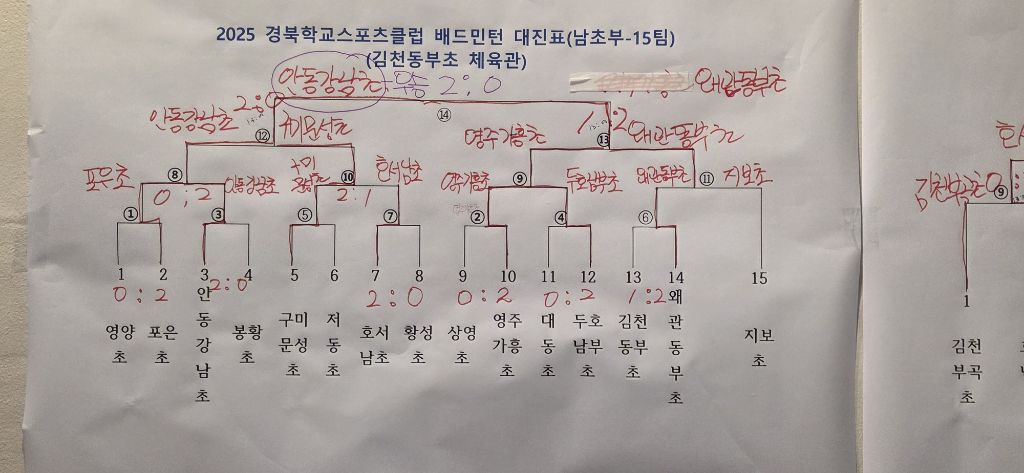 2025 경북학교스포츠클럽 배드민턴 대진표(남초부-15팀)
(김천동부초 체육관)
안동강남초 우승 2:0 왜관동부초
안동강남초 2:0 ⑭ 1:2
⑫ 구미문성초 영주가흥초 ⑬ 왜관동부초
포은초 ⑧ 안동강남초 구미문성초 ⑩ 호서남초 영주가흥초 ⑨ 두호남부초 왜관동부초 ⑪ 지보초
0:2 2:1
① ③ ⑤ ⑦ ② ④ ⑥
1 2 3 4 5 6 7 8 9 10 11 12 13 14 15
0:2 2:0 2:0 0:2 0:2 1:2
영양초 포은초 안동강남초 봉황초 구미문성초 저동초 호서남초 황성초 상영초 영주가흥초 대동초 두호남부초 김천동부초 왜관동부초 지보초
김천부곡초
⑨
1
김천부곡초